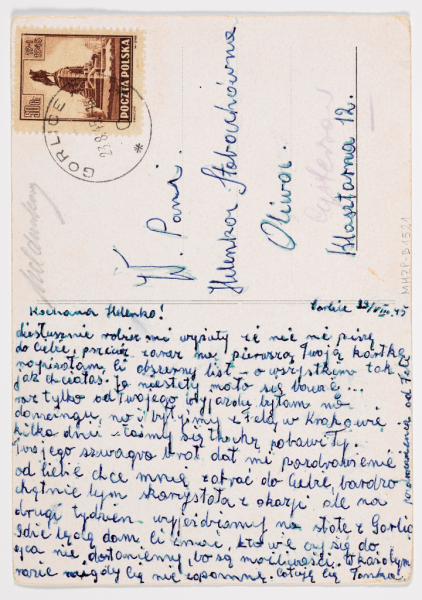 POCZTA POLSKA
GORLICE
W. Pani
Helenka
Oliwa
Klasztarna 12.
MHZR-B1521
Kochana Helenko! Gorlice 23/VIII.45
niesłusznie robisz mi wyrzuty że nic nie piszę
do Ciebie, przecież zaraz na pierwszą Twoją kartkę
napisałam Ci obszerny list - o wszystkiem tak
jak chciałaś. Ja niestety mało się bawię...
raz tylko od Twojego wyjazdu byłam na
dancingu, no i byłyśmy z Felą w Krakowie
kilka dni - tośmy się trochę pobawiły.
Twojego szwagra brat dał mi pozdrowienie
od Ciebie chce mnie zabrać do Ciebie, bardzo
chętnie bym skorzystała z okazji ale na
drugi tydzień wyjeżdżamy na stałe z Gorlic
Gdzie będę dam Ci znać, kto wie czy się do
nie dostaniemy, bo są możliwości. W każdym
razie nigdy Cię nie zapomnę. Całuję Cię
pozdrowienia od Feli